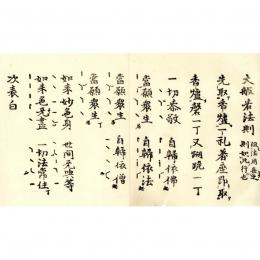 大般若法則
先取香爐一丁礼着座即取
香爐磬一丁又踞跪一丁
一切恭敬 自歸依佛
當願衆生 自歸依法
當願衆生 自歸依僧
當願衆生
如来妙色身 世間无與等
如来色无盡 一切法常住
次表白